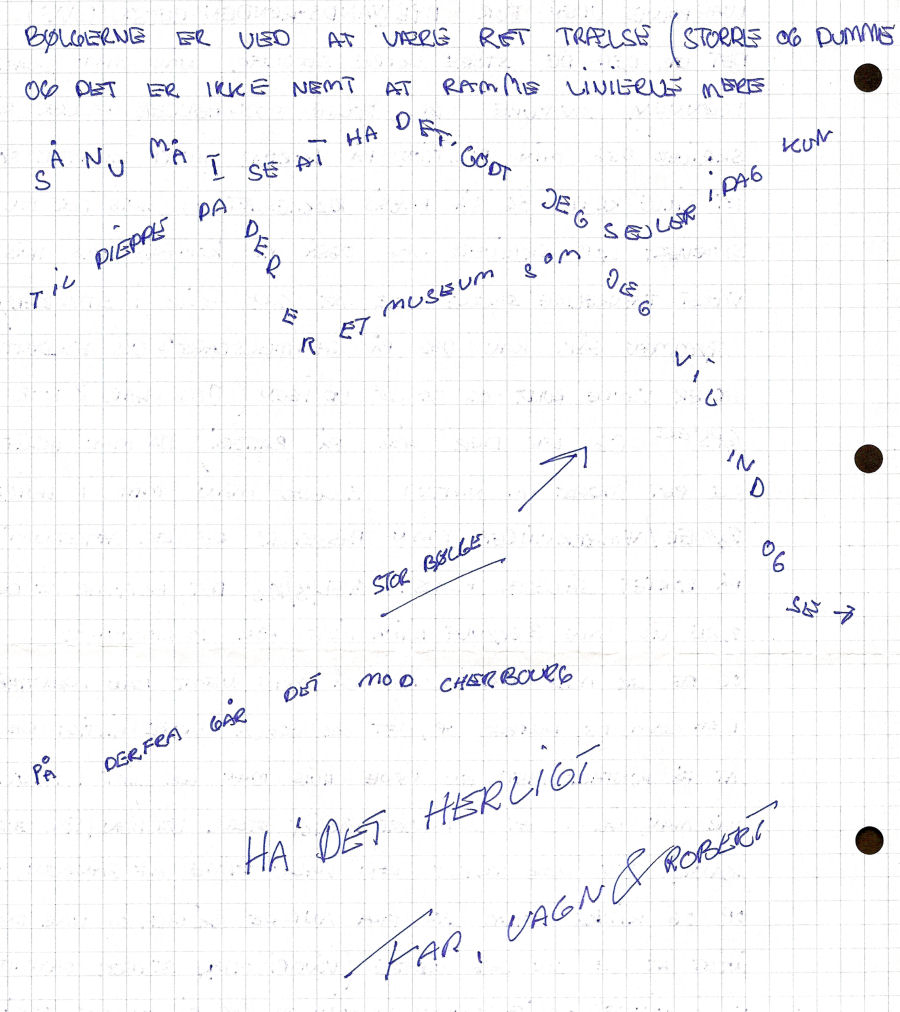 BØLGERNE ER VED AT VÆRE RET TRÆLSE (STORRE OG DUMME
OG DET ER IKKE NEMT AT RAMME LINIERNE MERE
SÅ NU MÅ I SE AT HA DET GODT
JEG SEJLER IDAG KUN
TIL DIEPPE DA DER ER ET MUSEUM SOM JEG VIL IND OG SE →
STOR BØLGE
PÅ DERFRA GÅR DET MOD CHERBOURG
HA' DET HERLIGT
FAR, VAGN & ROBERT